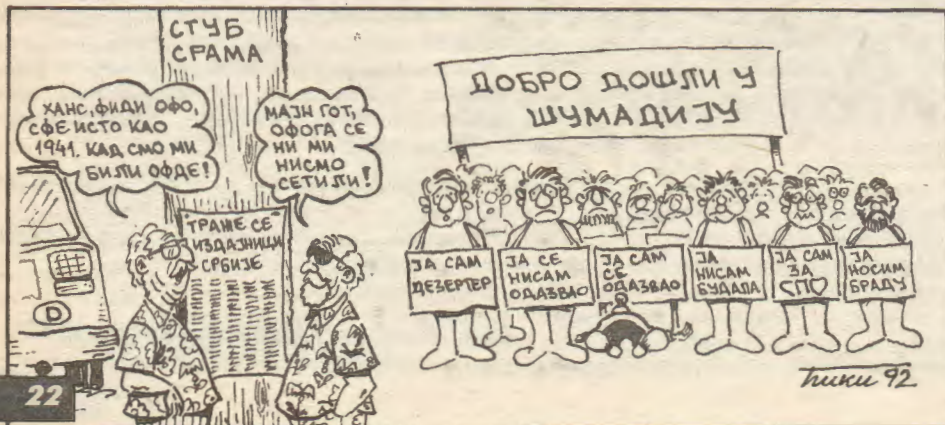 СТУБ
СРАМА
ХАНС, ФИДИ ОФО,
СФЕ ИСТО КАО
1941. КАД СМО МИ
БИЛИ ОФДЕ!
МАЈН ГОТ,
ОФОГА СЕ
НИ МИ
НИСМО
СЕТИЛИ!
"ТРАЖЕ СЕ"
ИЗДАЈНИЦИ
СРБИЈЕ
D
ДОБРО ДОШЛИ У
ШУМАДИЈУ
ЈА САМ
ДЕЗЕРТЕР
ЈА СЕ
НИСАМ
ОДАЗВАО
ЈА САМ
СЕ
ОДАЗВАО
ЈА
НИСАМ
БУДАЛА
ЈА САМ
ЗА
СПО
ЈА
НОСИМ
БРАДУ
Ћики 92
22